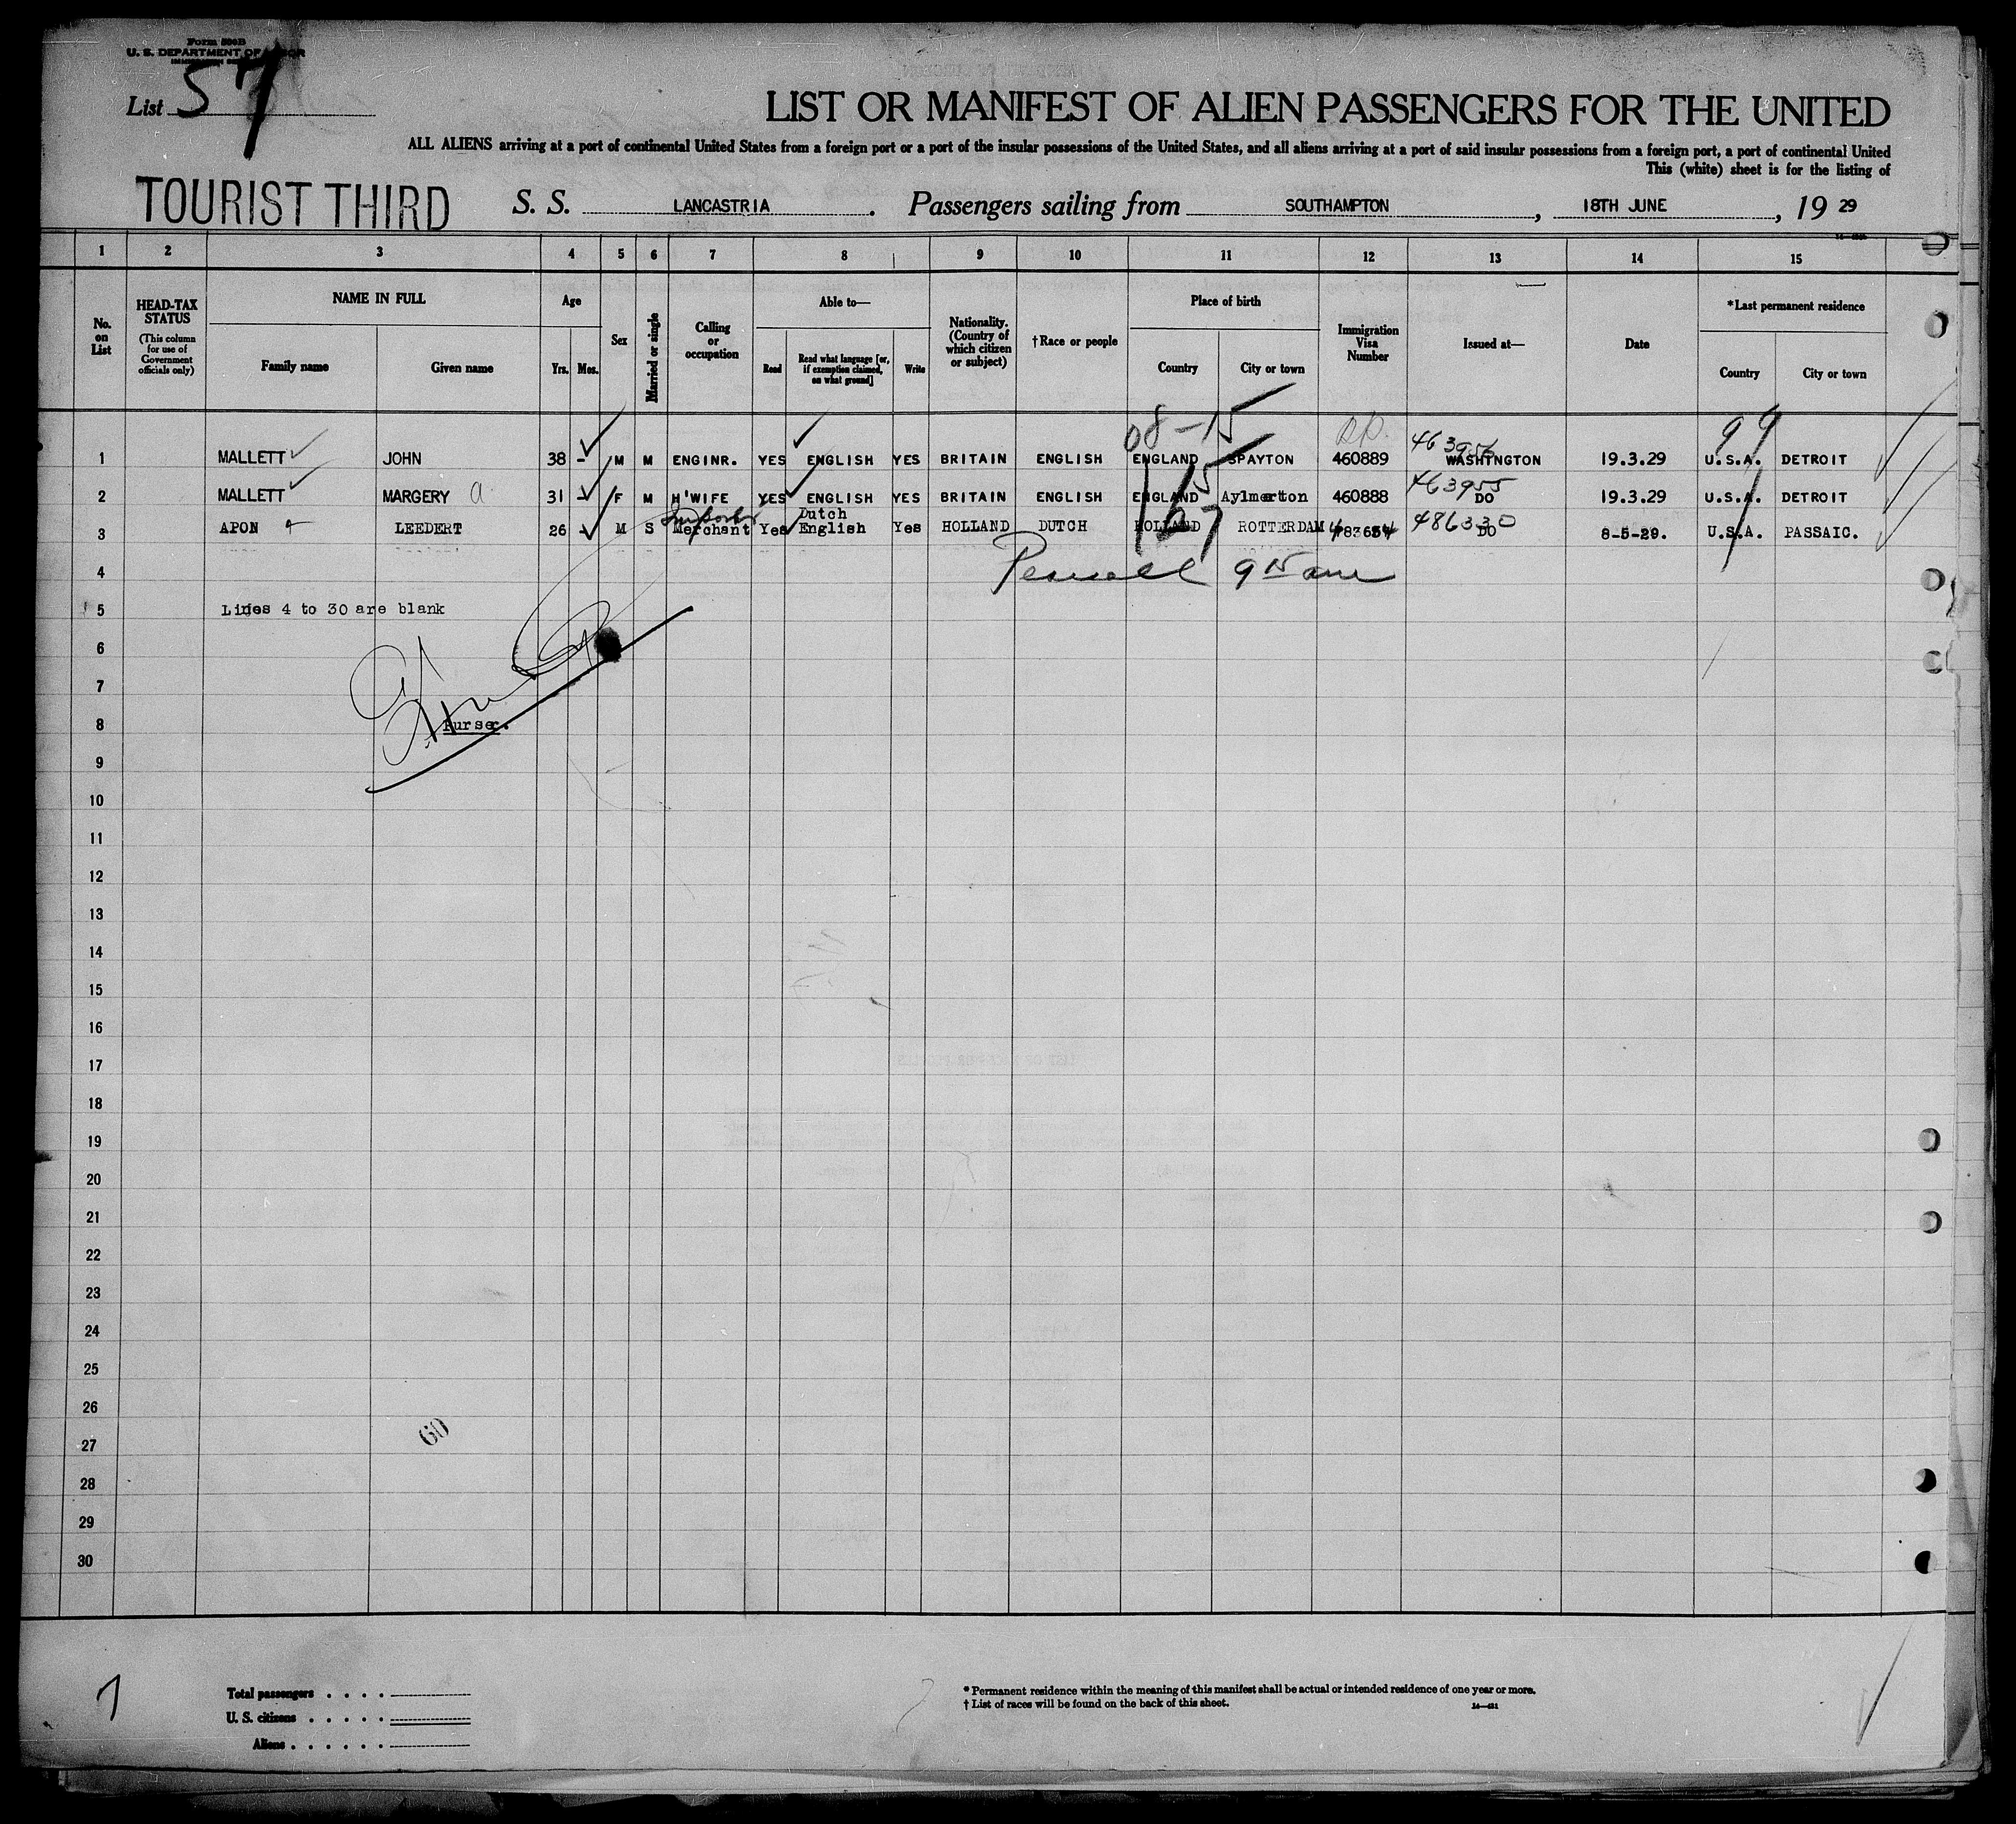 Form 500B
U. S. DEPARTMENT OF LABOR
List 57
LIST OR MANIFEST OF ALIEN PASSENGERS FOR THE UNITED
ALL ALIENS arriving at a port of continental United States from a foreign port or a port of the insular possessions of the United States, and all aliens arriving at a port of said insular possessions from a foreign port, a port of continental United
This (white) sheet is for the listing of
TOURIST THIRD S. S. LANCASTRIA. Passengers sailing from SOUTHAMPTON, 18TH JUNE, 19 29
1 2 3 4 5 6 7 8 9 10 11 12 13 14 15
No. on List
HEAD-TAX STATUS
(This column for use of Government officials only)
NAME IN FULL
Family name Given name
Age
Yrs. Mos.
Sex
Married or single
Calling or occupation
Able to—
Read Read what language [or, if exemption claimed, on what ground] Write
Nationality. (Country of which citizen or subject)
†Race or people
Place of birth
Country City or town
Immigration Visa Number
Issued at—
Date
*Last permanent residence
Country City or town
08-15 463956 99
1 MALLETT JOHN 38 - M M ENGINR. YES ENGLISH YES BRITAIN ENGLISH ENGLAND SPAYTON 460889 WASHINGTON 19.3.29 U.S.A. DETROIT
15 463955
2 MALLETT MARGERY a 31 - F M H'WIFE YES ENGLISH YES BRITAIN ENGLISH ENGLAND Aylmerton 460888 DO 19.3.29 U.S.A. DETROIT
Dutch
3 APON LEEDERT 26 - M S Merchant Yes English Yes HOLLAND DUTCH HOLLAND ROTTERDAM 486330 DO 8-5-29. U.S.A. PASSAIC.
4 9 15 am
5 Lines 4 to 30 are blank
6
7
8 Purser.
9
10
11
12
13
14
15
16
17
18
19
20
21
22
23
24
25
26
27 60
28
29
30
Total passengers . . . .
U. S. citizens . . . . .
Aliens . . . . . .
* Permanent residence within the meaning of this manifest shall be actual or intended residence of one year or more.
† List of races will be found on the back of this sheet.